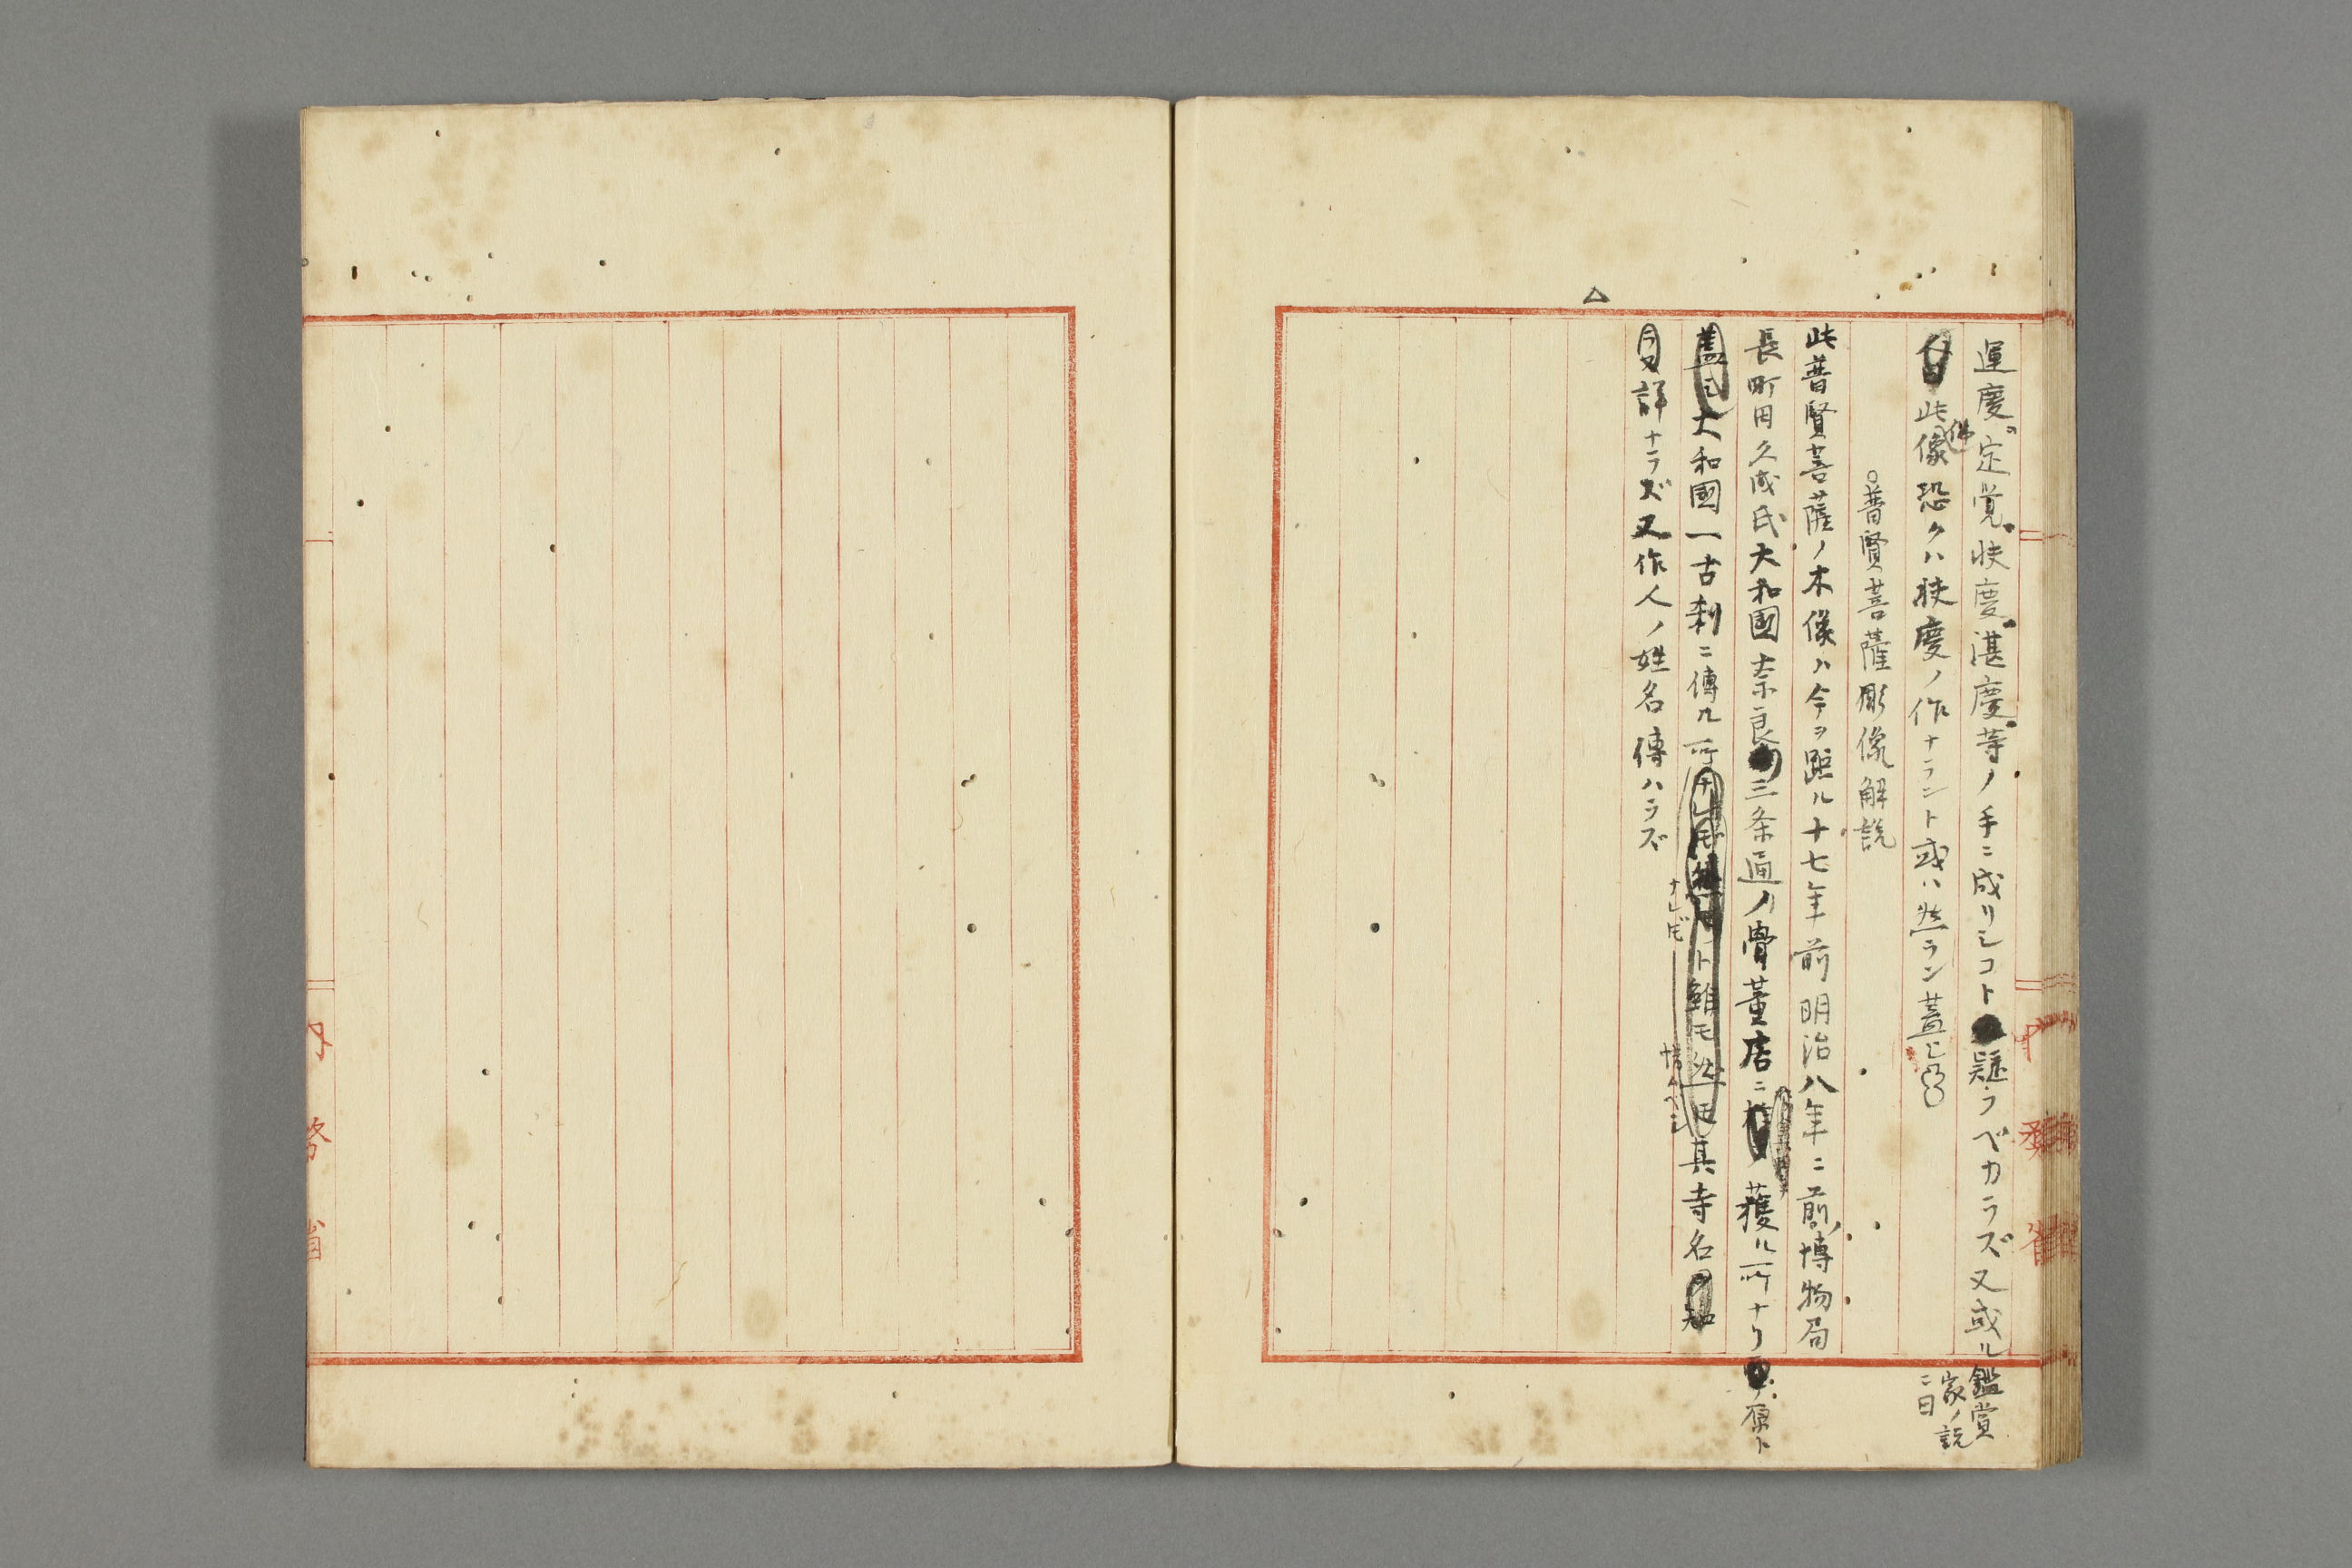 運慶。定覚。快慶。湛慶。等ノ手ニ成リシコト疑フベカラズ又或ル鑑賞
家ノ説
ニ曰
此像恐クハ快慶ノ作ナラント或ハ然ラン蓋シ
佛
○普賢菩薩彫像解説
此普賢菩薩ノ木像ハ今ヲ距ル十七年前明治八年ニ前ノ博物局
長町田久成氏大和國奈良三条通ノ骨董店ニ獲ル所ナリ原ト
蓋シ大和國一古刹ニ傳ル所ト雖モ然トモ其寺名
ナレ𪜈
惜ムベシ
△
今又詳ナラズ又作人ノ姓名傳ハラズ
内務省
内務省